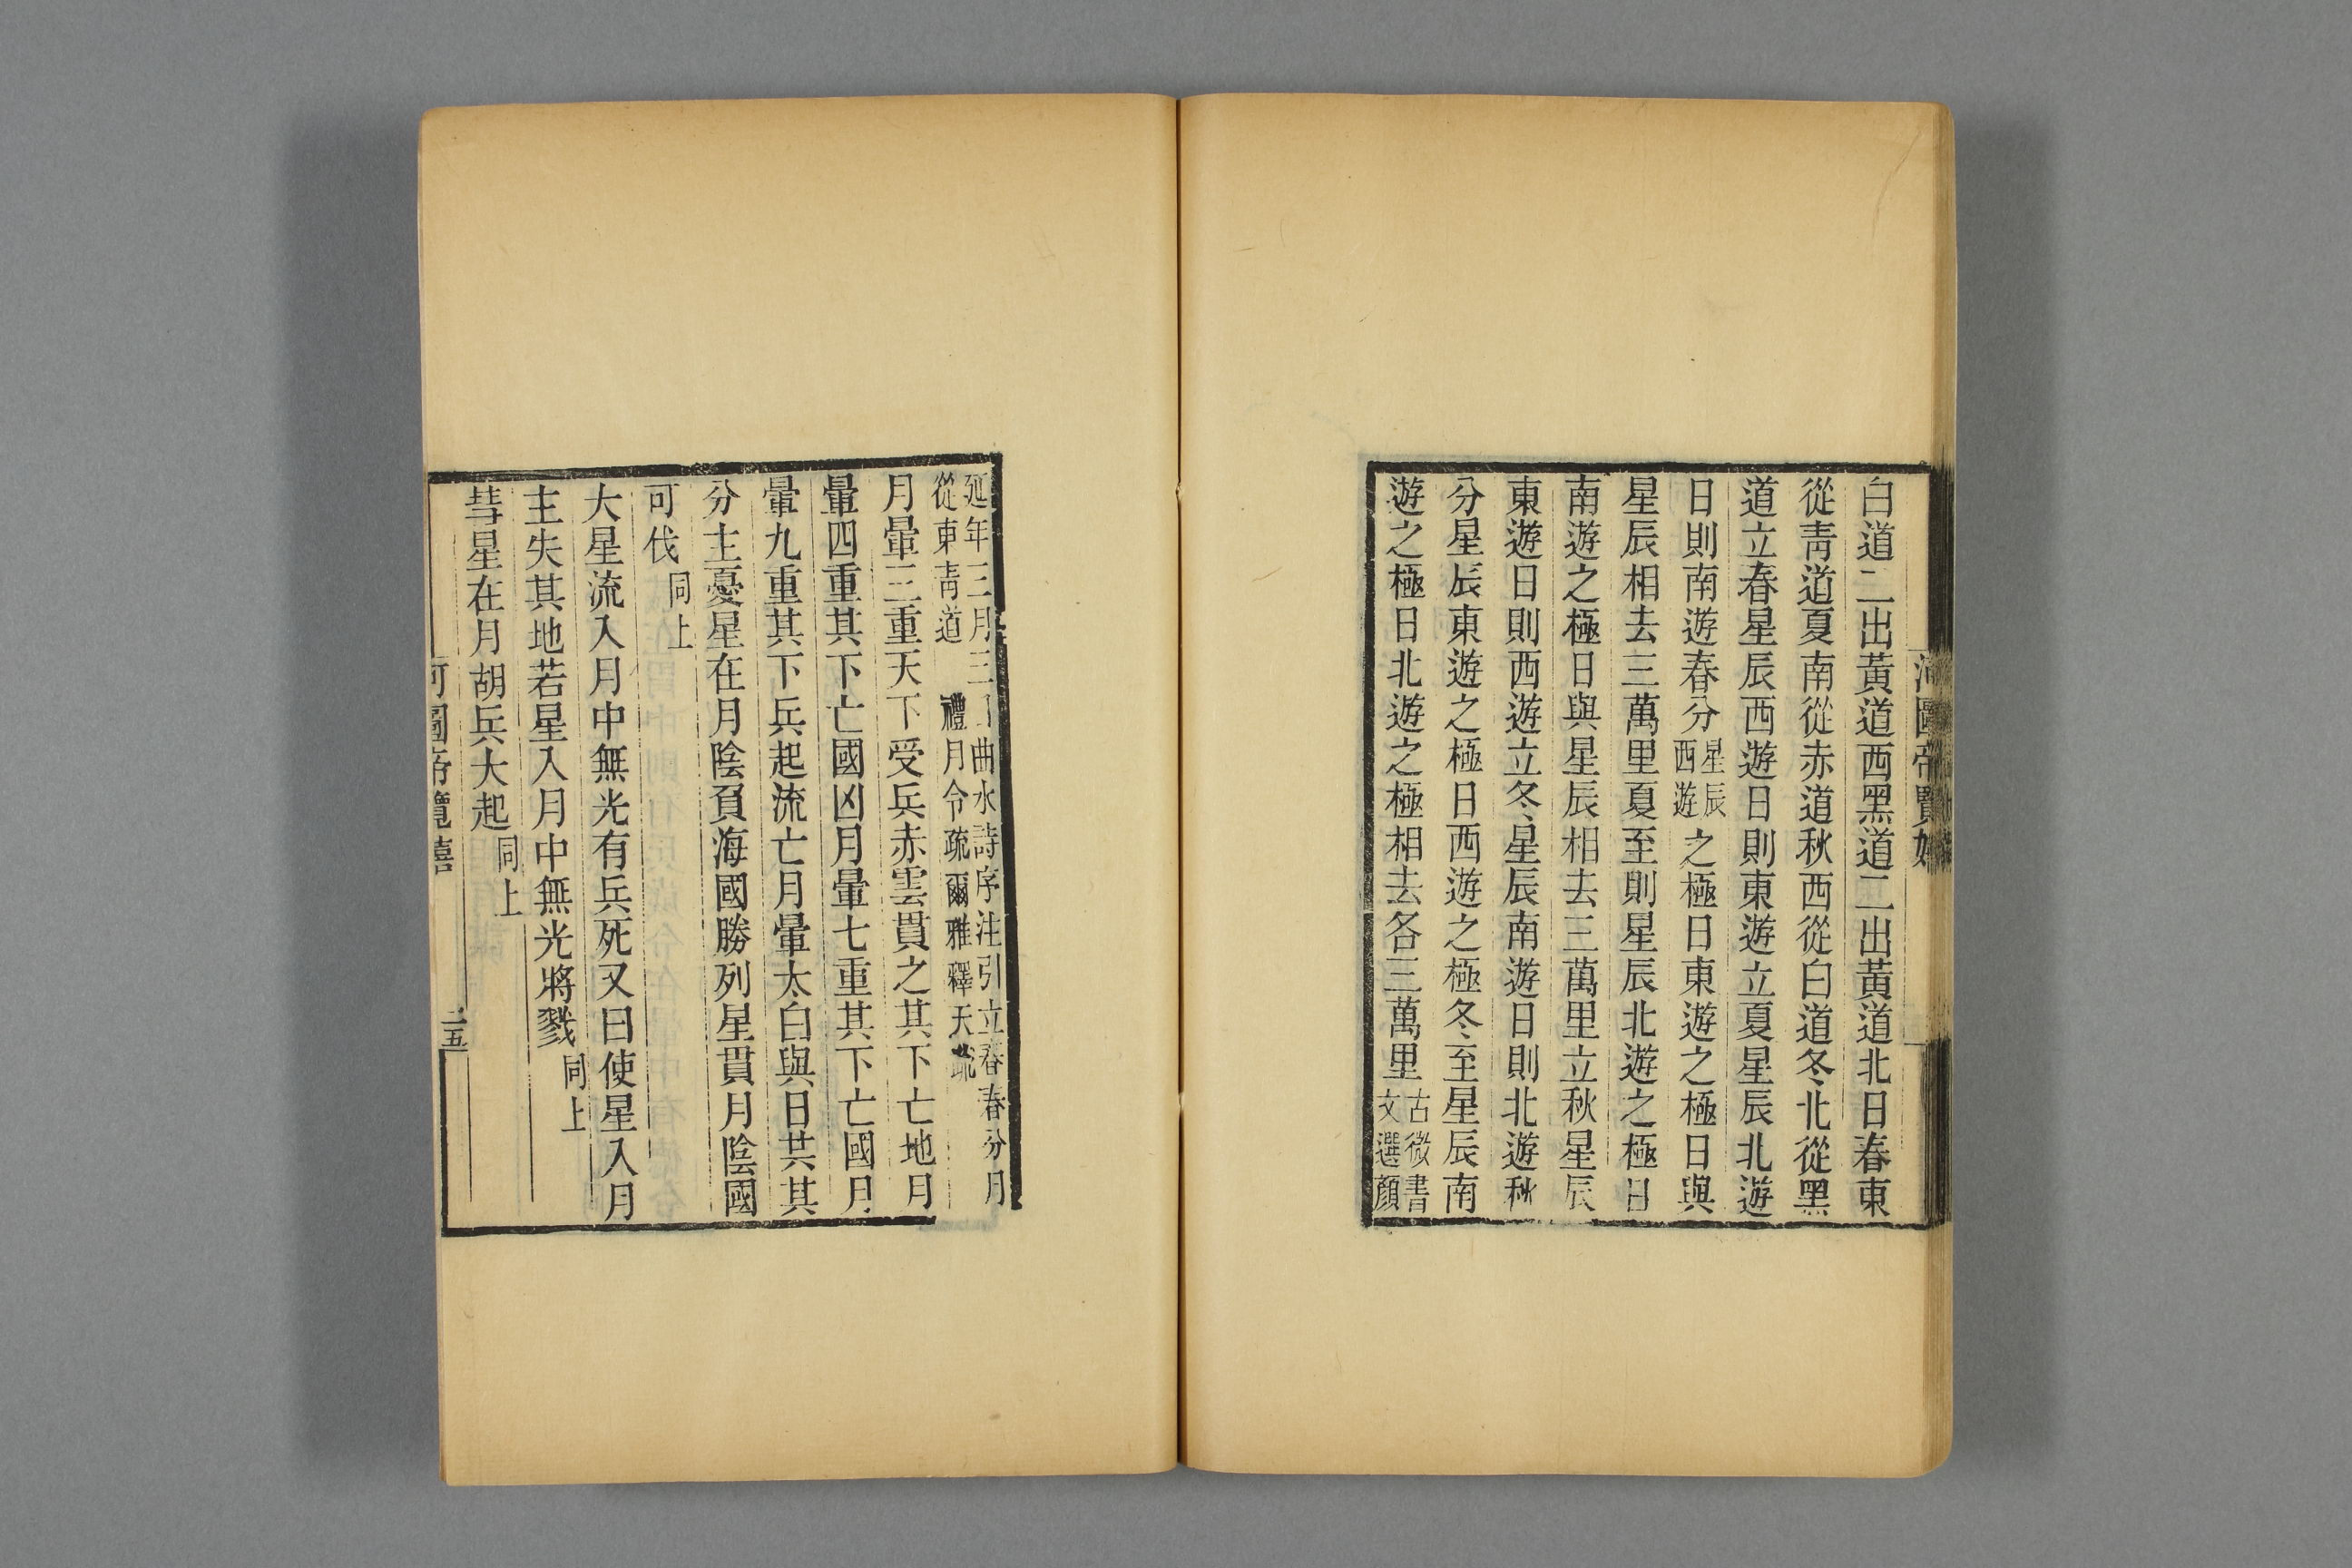 白道二出黃道西黑道二出黃道北日春東
從靑道夏南從赤道秋西從白道冬北從黑
道立春星辰西遊日則東遊立夏星辰北遊
日則南遊春分星辰西遊之極日東遊之極日與
星辰相去三萬里夏至則星辰北遊之極日
南遊之極日與星辰相去三萬里立秋星辰
東遊日則西遊立冬星辰南遊日則北遊秋
分星辰東遊之極日西遊之極冬至星辰南
遊之極日北遊之極相去各三萬里古微書
文選顏
延年三月三日曲水詩序注引立春春分月
從東靑道 禮月令疏爾雅釋天疏
月暈三重天下受兵赤雲貫之其下亡地月
暈四重其下亡國凶月暈七重其下亡國月
暈九重其下兵起流亡月暈太白與日共其
分主憂星在月陰負海國勝列星貫月陰國
可伐同上
大星流入月中無光有兵死又曰使星入月
主失其地若星入月中無光將戮同上
彗星在月胡兵大起同上
河圖帝覽嬉
五